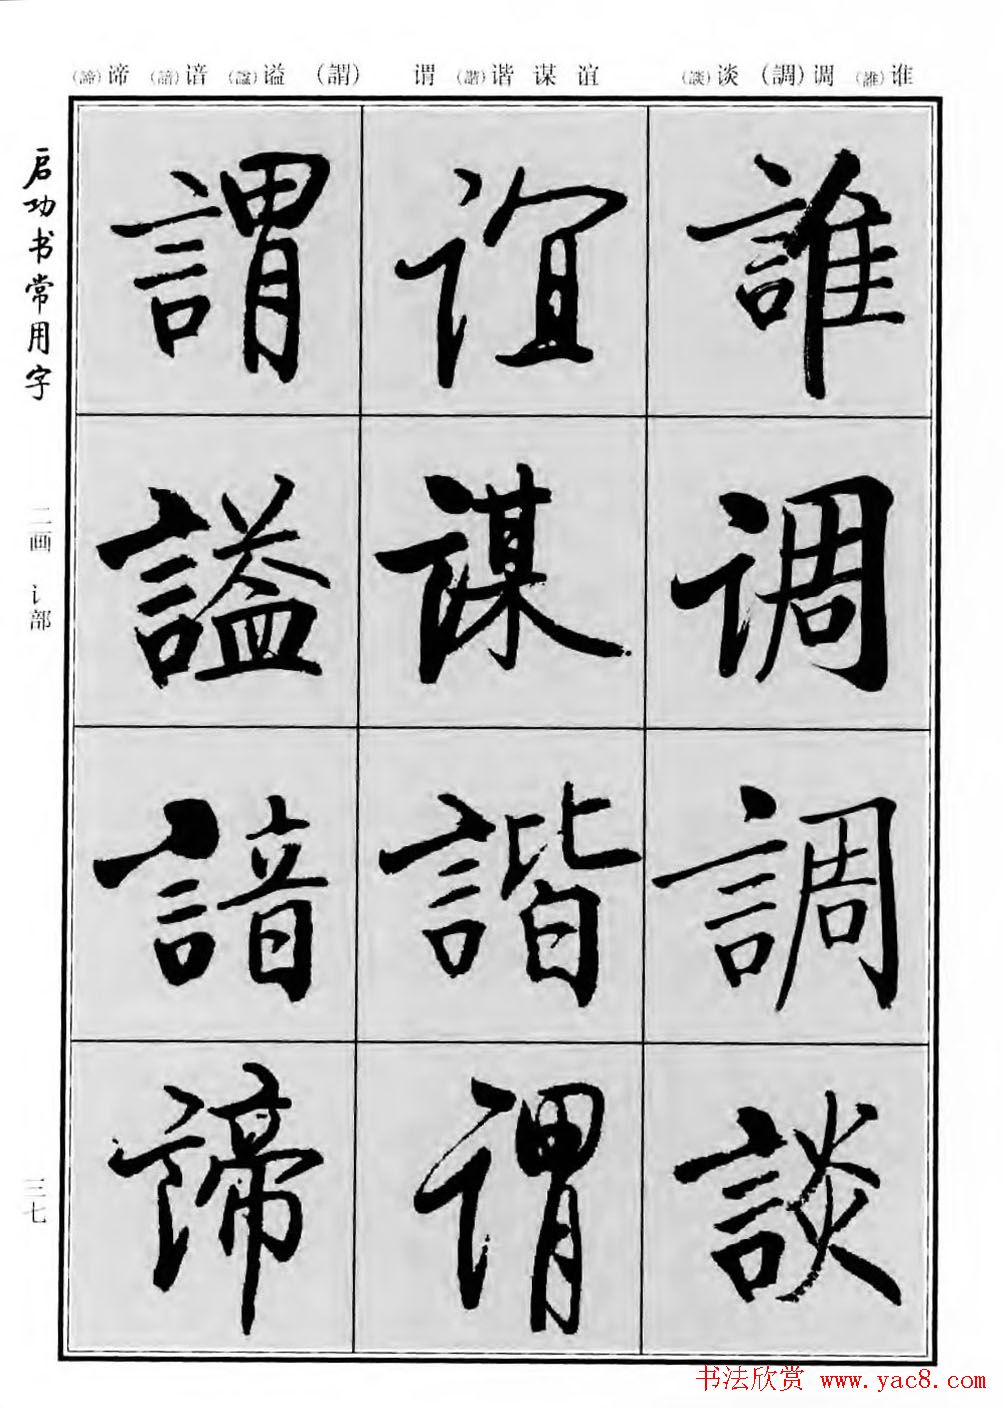 谁(誰) 调(調) 谈(談)
谊 谋 谐(諧) 谓
(謂) 谥(謚) 谙(諳) 谛(諦)
誰
调
調
談
谊
谋
諧
谓
謂
謚
諳
諦
启功书常用字
二画 讠部
三七
书法欣赏 www.yac8.com